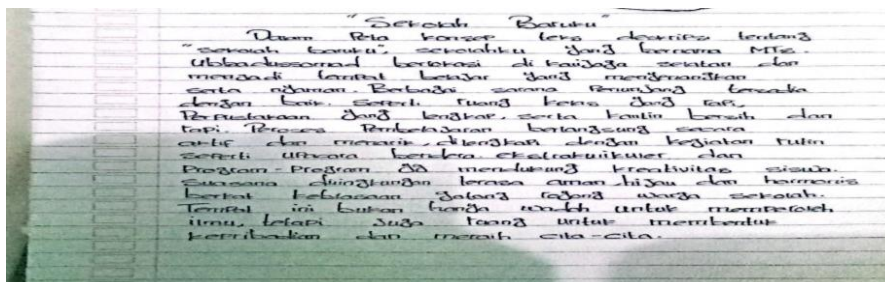 "Sekolah Baruku"
Dalam Peta konsep teks deskripsi tentang
"sekolah baruku", sekolahku yang bernama MTs.
Ubbadussomad berlokasi di kalijaga selatan dan
menjadi tempat belajar yang menyenangkan
serta nyaman. Berbagai sarana Penunjang tersedia
dengan baik. Seperti ruang kelas yang rapi,
Perpustakaan yang lengkap, serta kantin bersih dan
rapi. Peroses Pembelajaran berlangsung secara
aktif dan menarik, dilengkapi dengan kegiatan rutin
seperti upacara bendera, ekstrakulikuler, dan
Program-Program yg mendukung kreativitas siswa.
Suasana dilingkungan terasa aman, hijau dan harmonis
berkat kebiasaan gotong royong warga sekolah.
Tempat ini bukan hanya wadah untuk memperoleh
ilmu, tetapi juga ruang untuk membentuk
kepribadian dan meraih cita-cita.